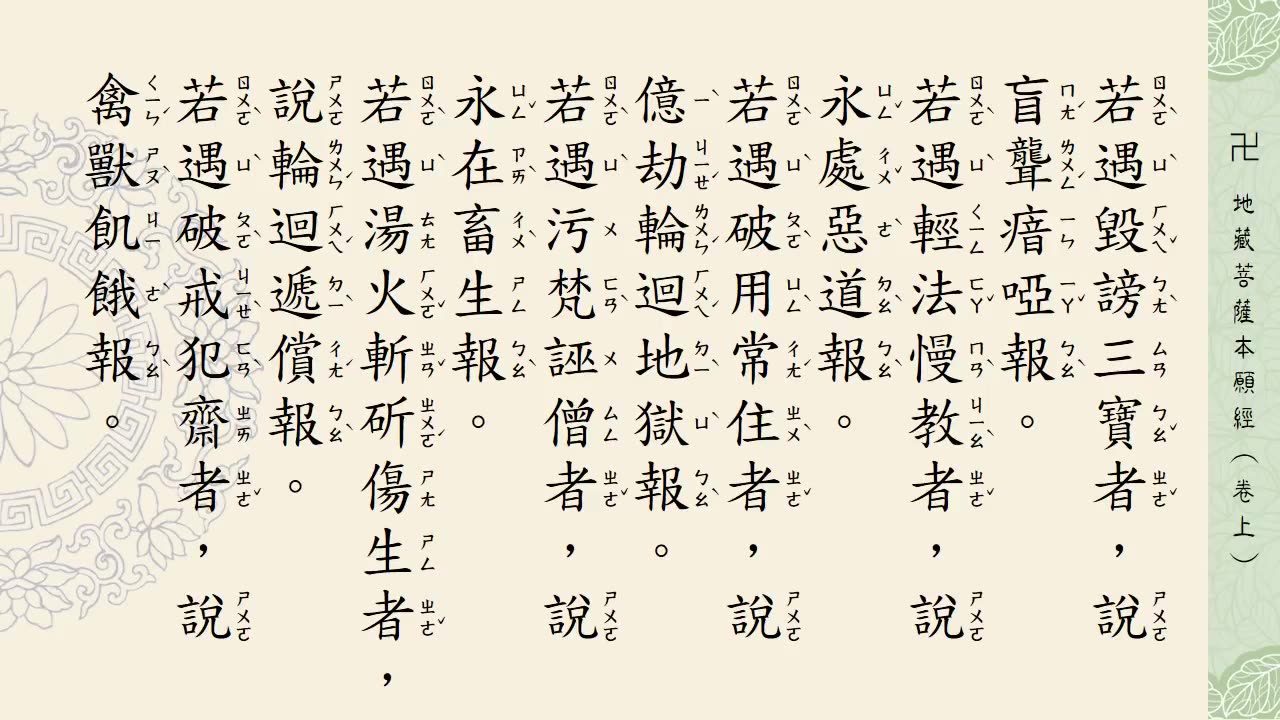 若遇毀謗三寶者，說
盲聾瘖啞報。
若遇輕法慢教者，說
永處惡道報。
若遇破用常住者，說
億劫輪迴地獄報。
若遇污梵誣僧者，說
永在畜生報。
若遇湯火斬斫傷生者，
說輪迴遞償報。
若遇破戒犯齋者，說
禽獸飢餓報。
卍 地藏菩薩本願經（卷上）